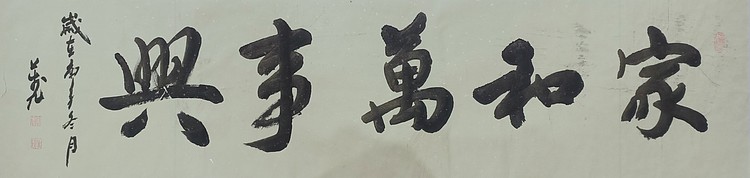 家和萬事興
歲在丙子冬月